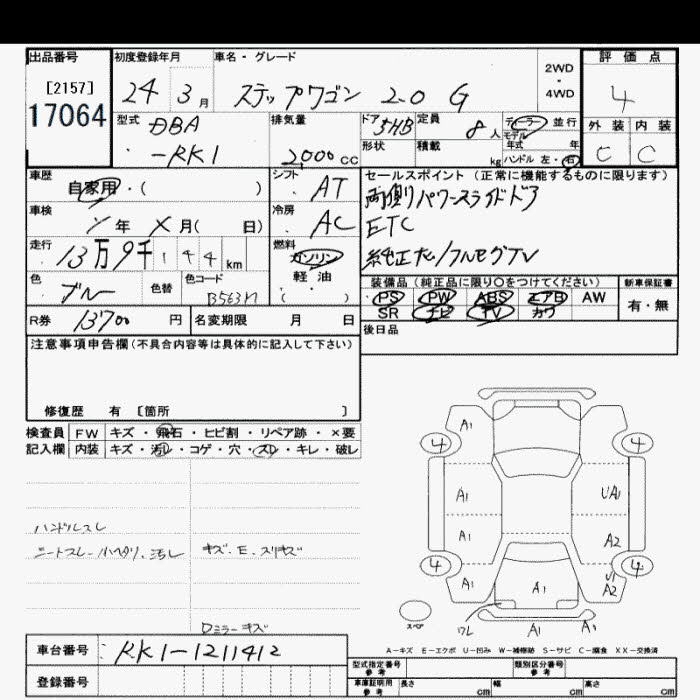 出品番号 初度登録年月 車名・グレード 評価点
[2157] 17064
24 3月 ステップワゴン 2.0 G 2WD・4WD 4
型式 DBA-RK1 排気量 2000cc ドア 5HB 定員 8人 ディーラー 並行 外装 内装
形状 積載 kg モデル年式 年 C C
ハンドル 左・右
車歴 自家用・( ) シフト AT セールスポイント(正常に機能するものに限ります)
両側パワースライドドア
車検 年 月( 日) 冷房 AC ETC
走行 13万9千144km 燃料 ガソリン 軽油 ( )
色 ブルー 色替 色コード
装備品(純正品に限り○をつけてください) 新車保証書
PS PW ABS エアB AW 有・無
SR ナビ TV カワ
R券 13700円 名変期限 月 日 後日品
注意事項申告欄(不具合内容等は具体的に記入して下さい)
修復歴 有 [箇所 ]
検査員 FW キズ・飛石・ヒビ割・リペア跡・×要
記入欄 内装 キズ・汚レ・コゲ・穴・スレ・キレ・破レ
ハンドルスレ
シートスレ・小ヘタリ、汚レ キズ.E.スリキズ
Dミラーキズ
A1
4 4
A1 UA1
A1 A2
4 4
A1 A1 U1 A2
スペア ワレ A1 A1
A-キズ E-エクボ U-凹み W-補修跡 S-サビ C-腐食 XX-交換済
車台番号 RK1-1211412
登録番号
型式指定番号 参考 類別区分番号 参考
車庫証明用 参考 長さ cm 幅 cm 高さ cm